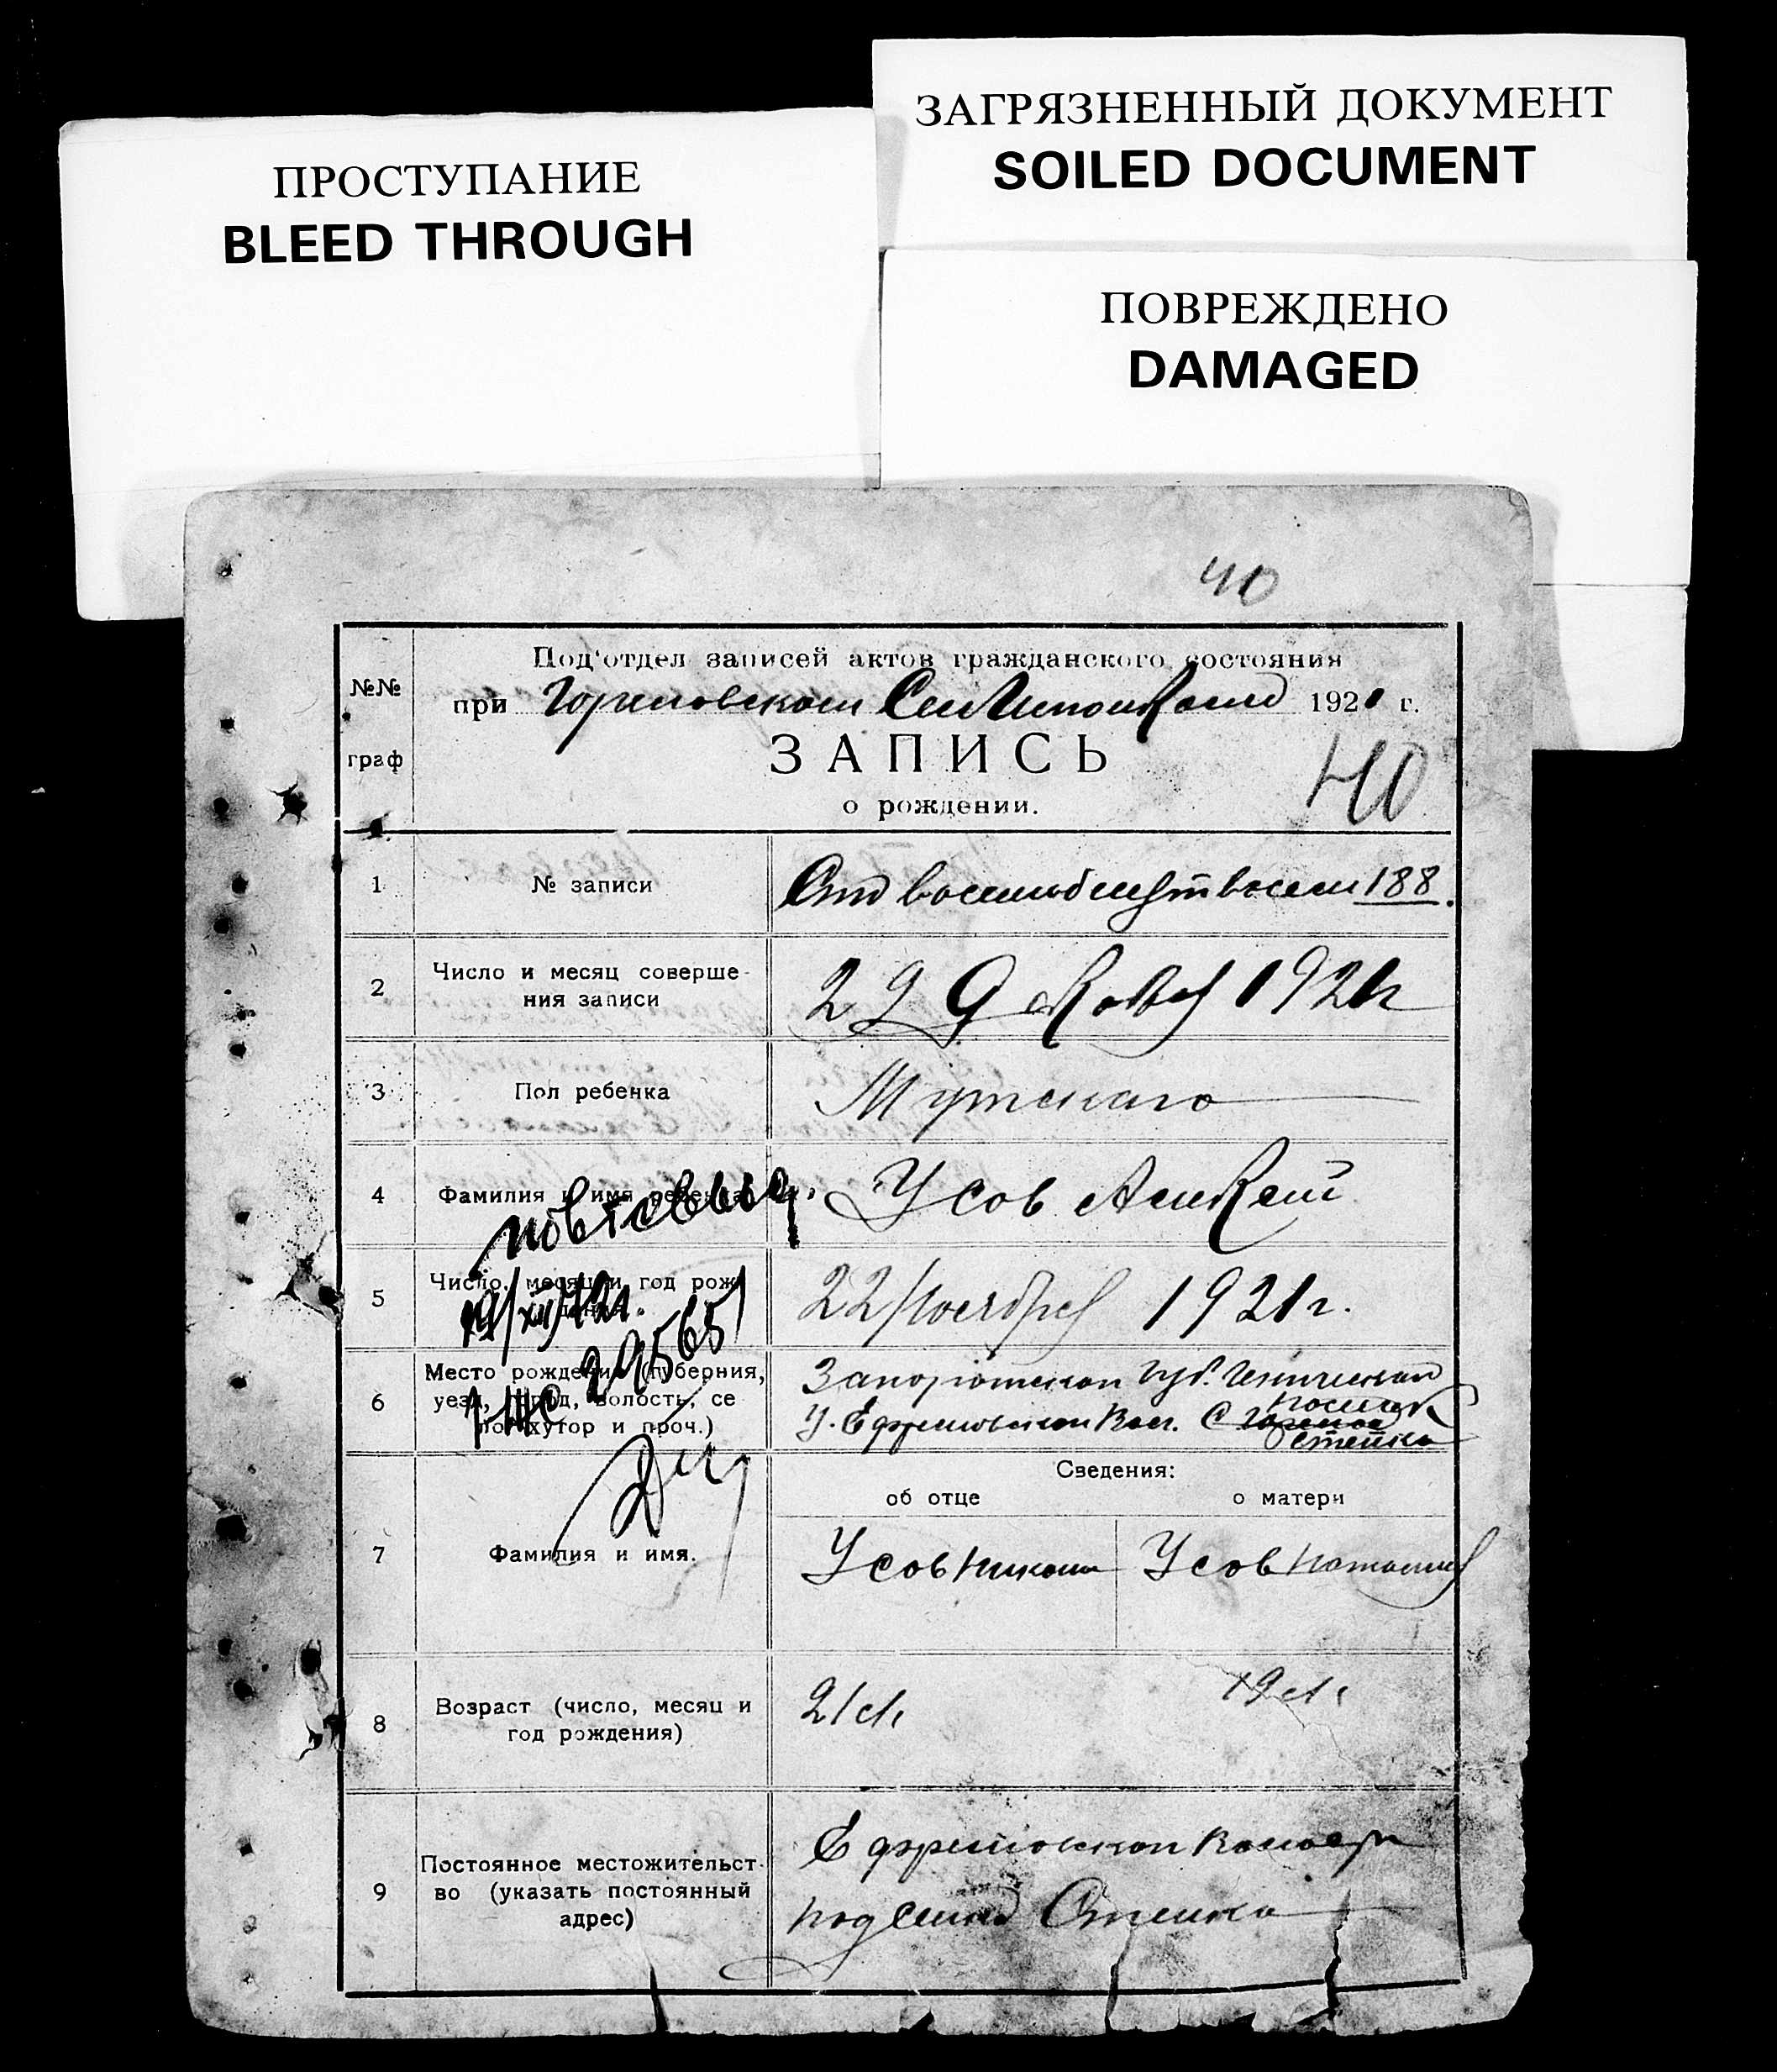 ПРОСТУПАНИЕ
BLEED THROUGH
ЗАГРЯЗНЕННЫЙ ДОКУМЕНТ
SOILED DOCUMENT
ПОВРЕЖДЕНО
DAMAGED
40
№№
граф
Под'отдел записей актов гражданского состояния
при 1921 г.
ЗАПИСЬ
40
о рождении.
1 № записи Сто восемьдесят восем 188.
2 Число и месяц соверше-
ния записи
29 декабря 1921г
3 Пол ребенка Мужскаго
4 Фамилия и имя ребенка Усов Алексей
5 Число, месяц и год рож-
дения.
22/Ноября 1921г.
29565
6 Место рождения (губерния,
уезд, город, волость, се
ло, хутор и проч.)
Запорожской губ.
у. Ефремовской Вол. с.
1 ЖС
Сведения:
об отце о матери
7 Фамилия и имя. Усов Усов Наталия
8 Возраст (число, месяц и
год рождения)
21 л. 19 л.
9 Постоянное местожительст-
во (указать постоянный
адрес)
Ефремовской волости